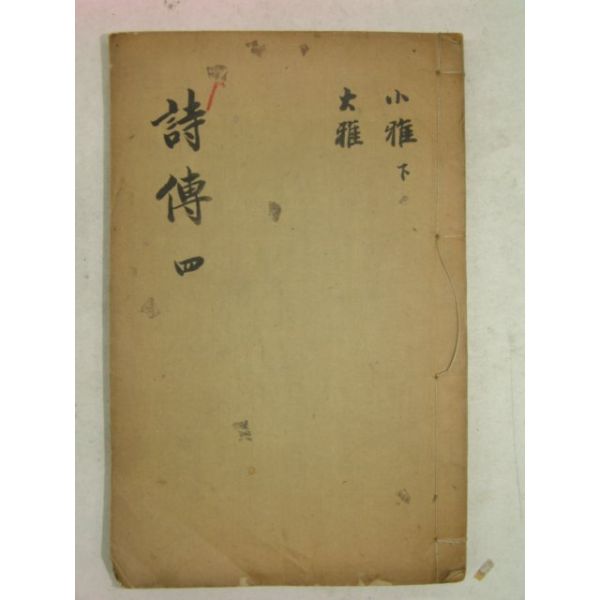 小雅下
大雅
詩傳四